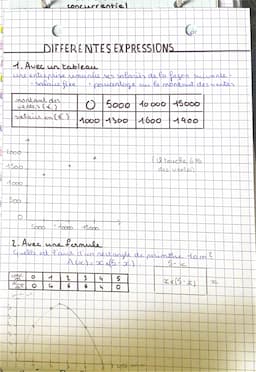 concurrentiel
DIFFERENTES EXPRESSIONS
1. Avec un tableau
une entreprise rémunère ses salariés de la façon suivante :
- salaire fixe - pourcentage sur le montant des ventes
montant des ventes (€) 0 5000 10 000 15000
salaire en (€) 1000 1300 1600 1900
(il touche 6%
des ventes)
1500
1000
500
0
5000
2. Avec une formule
Quelle est l'aire d'un rectangle de périmètre 10m?
A(x) = x × (5 - x)
5 - x
x × (5 - x) x
0 1 2 3 4 5
0 4 6 6 4 0